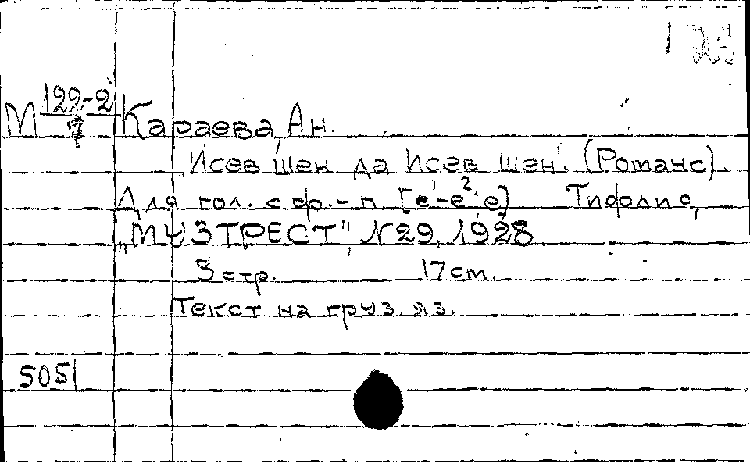 М 122-2
7
Караева, Ан.
Исев шен да Исев шен. (Романс).
Для гол. с фр.-п. [e¹-e² e] Тифлис,
„МУЗТРЕСТ", N29, 1928
3 стр. 17 cm.
Текст на груз. яз.
5051